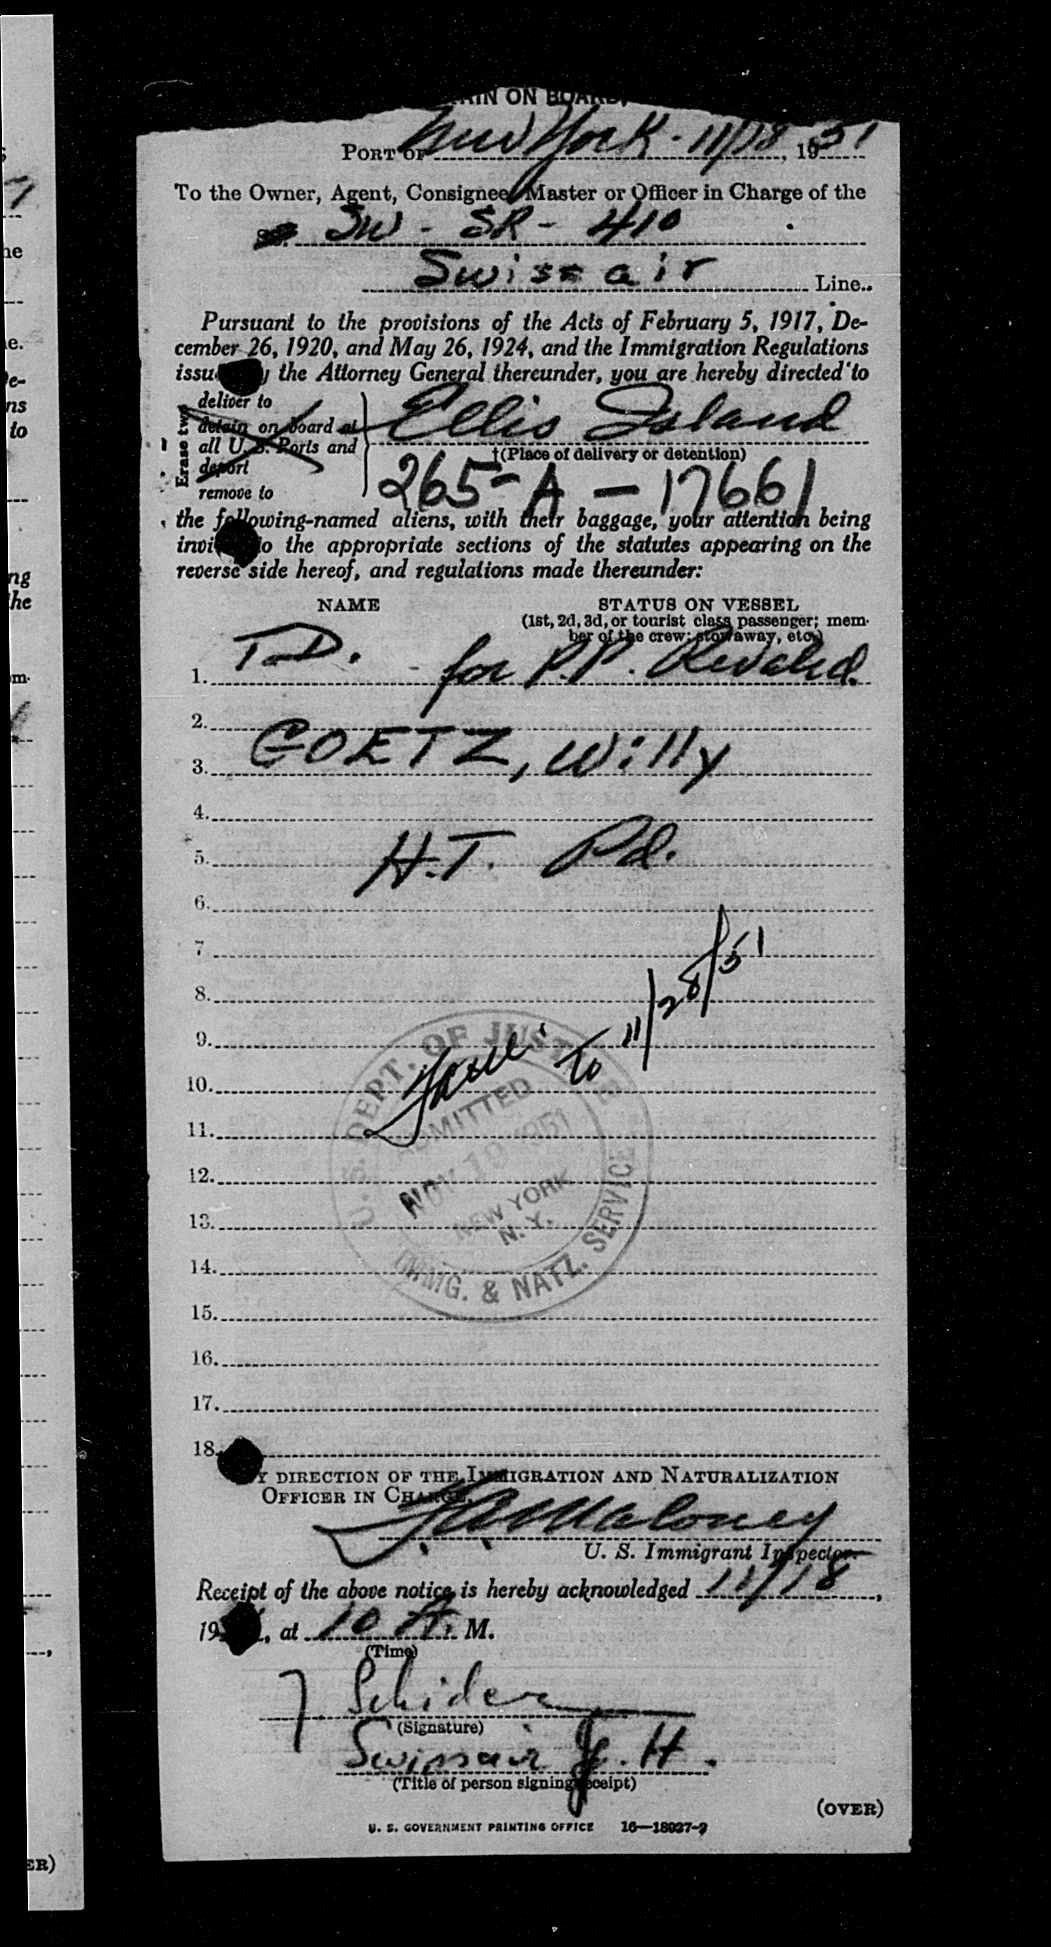 AIN ON BOARD,
PORT OF New York - 11/18, 1951
To the Owner, Agent, Consignee, Master or Officer in Charge of the
SW - SR - 410
Swissair Line..
Pursuant to the provisions of the Acts of February 5, 1917, De-
cember 26, 1920, and May 26, 1924, and the Immigration Regulations
issu y the Attorney General thereunder, you are hereby directed to
Erase two
deliver to
detain on board at
all U. S. Ports and
deport
remove to
Ellis Island
†(Place of delivery or detention)
265-A-17661
the following-named aliens, with their baggage, your attention being
invi o the appropriate sections of the statutes appearing on the
reverse side hereof, and regulations made thereunder:
NAME STATUS ON VESSEL
(1st, 2d, 3d, or tourist class passenger; mem-
ber of the crew; stowaway, etc.)
1. T.D. for P.P. Revalid.
2.
3. GOETZ, Willy
4.
5. H.T. Pd.
6.
7
8.
9. To 11/28/51
10.
11.
12.
13.
14.
15.
16.
17.
18.
U. S. DEPT. OF JUSTICE
ADMITTED
NOV 19 1951
NEW YORK
N. Y.
IMMG. & NATZ. SERVICE
Y DIRECTION OF THE IMMIGRATION AND NATURALIZATION
OFFICER IN CHARGE.
Maloney
U. S. Immigrant Inspector.
Receipt of the above notice is hereby acknowledged 11/18,
19 , at 10 A. M.
(Time)
Schider
(Signature)
Swissair
(Title of person signing receipt)
(OVER)
U. S. GOVERNMENT PRINTING OFFICE 16—18927-2